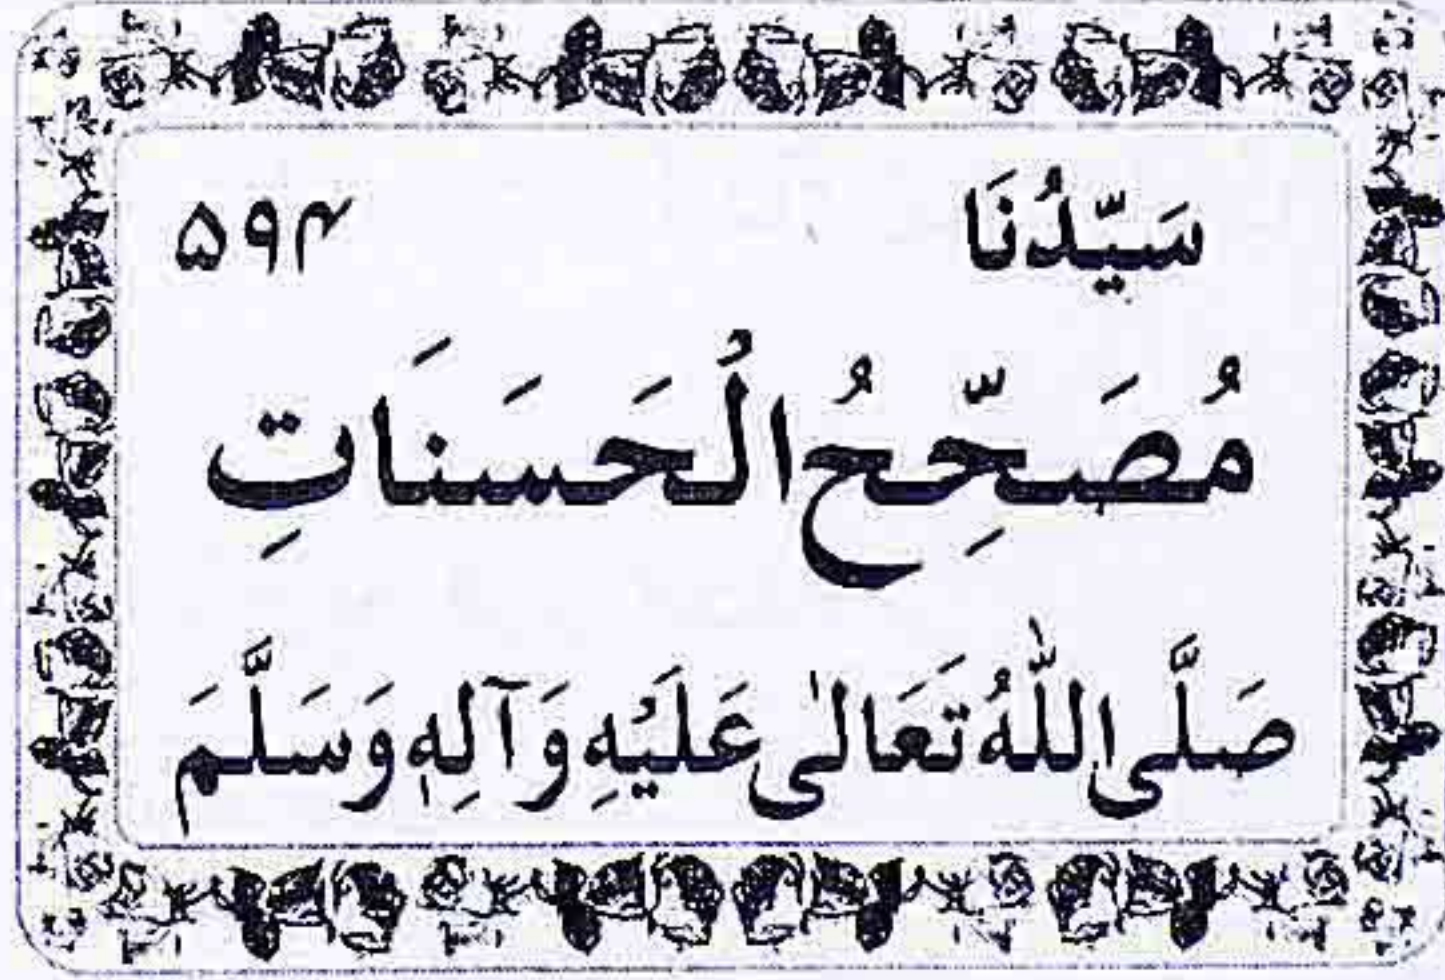 سَيِّدُنَا ۵۹۴
مُصَحِّحُ الْحَسَنَاتِ
صَلَّى اللّٰهُ تَعَالٰى عَلَيْهِ وَآلِهٖ وَسَلَّمَ